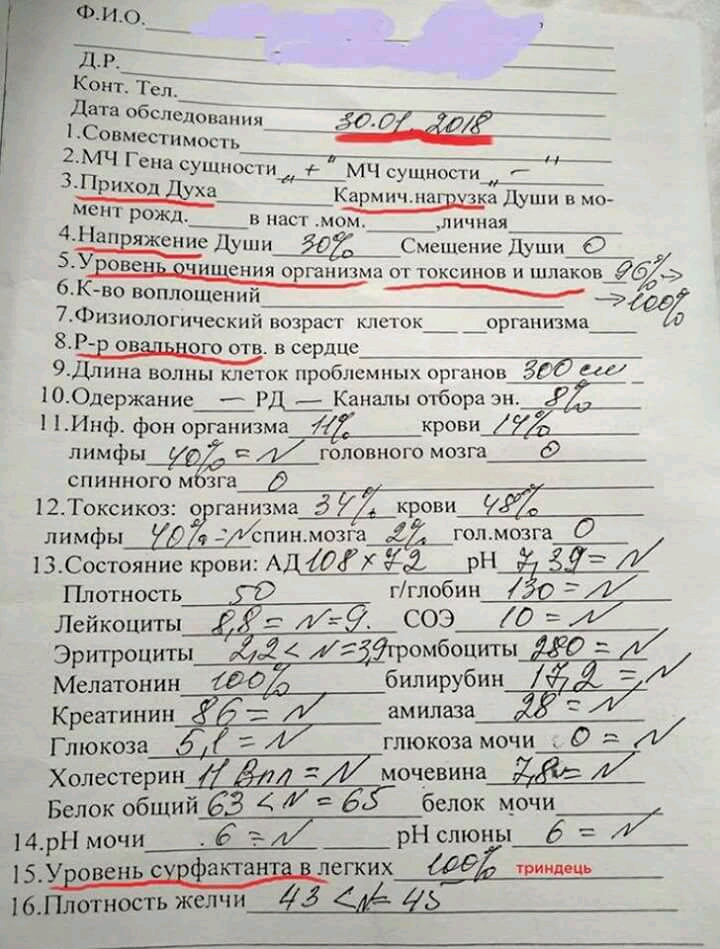 Ф.И.О.
Д.Р.
Конт. Тел.
Дата обследования 30.01.2018
1.Совместимость
2.МЧ Гена сущности „ + " МЧ сущности „ – "
3.Приход Духа Кармич.нагрузка Души в мо-
мент рожд. в наст .мом. ,личная
4.Напряжение Души 30% Смещение Души 0
5.Уровень очищения организма от токсинов и шлаков 96% →
6.К-во воплощений → 100%
7.Физиологический возраст клеток организма
8.Р-р овального отв. в сердце
9.Длина волны клеток проблемных органов 300 см
10.Одержание – РД – Каналы отбора эн. 8%
11.Инф. фон организма 11% крови 14%
лимфы 40% = N головного мозга 0
спинного мозга 0
12.Токсикоз: организма 34% крови 48%
лимфы 40% = N спин.мозга 2% гол.мозга 0
13.Состояние крови: АД 108 × 72 рН 7,39 = N
Плотность 50 г/глобин 130 = N
Лейкоциты 8,8 = N = 9. СОЭ 10 = N
Эритроциты 2,2 < N = 3,9 тромбоциты 280 = N
Мелатонин 100% билирубин 17,2 = N
Креатинин 86 = N амилаза 28 = N
Глюкоза 5,1 = N глюкоза мочи 0 = N
Холестерин = N мочевина 7,8 = N
Белок общий 63 < N = 65 белок мочи
14.рН мочи 6 = N рН слюны 6 = N
15.Уровень сурфактанта в легких 100% триндець
16.Плотность желчи 43 < N = 45